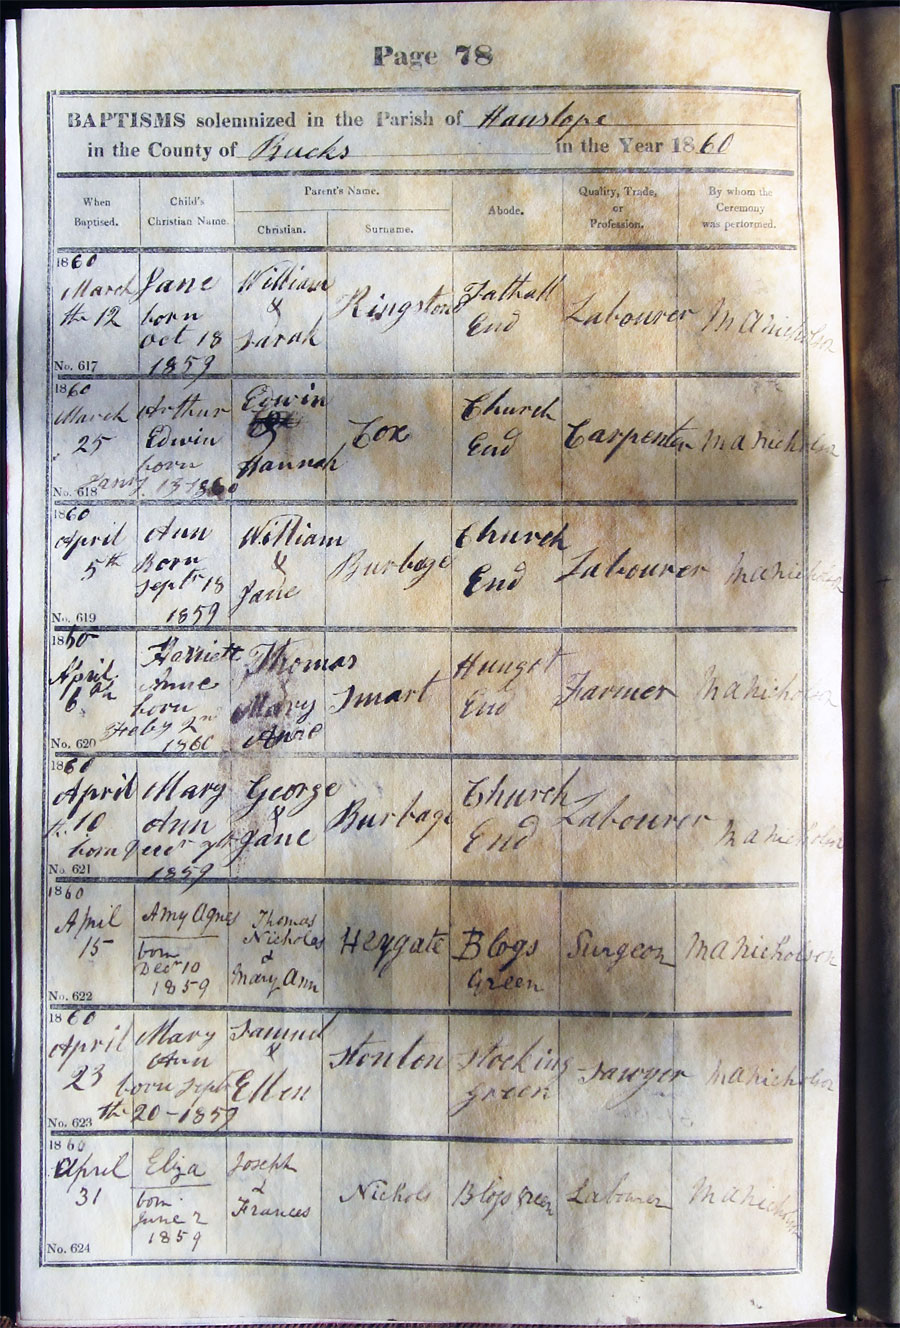 Page 78
BAPTISMS solemnized in the Parish of Hanslope
in the County of Bucks in the Year 1860
When Baptised.
Child's Christian Name.
Parent's Name.
Christian.
Surname.
Abode.
Quality, Trade, or Profession.
By whom the Ceremony was performed.
1860
March
th 12
No. 617
Jane
born
Oct 18
1859
William
&
Sarah
Kingston
Tathall
End
Labourer
M A Nicholson
1860
March
25
No. 618
Arthur
Edwin
born
Jany. 13 1860
Edwin
&
Hannah
Cox
Church
End
Carpenter
M A Nicholson
1860
April
5th
No. 619
Ann
Born
Septr 18
1859
William
&
Jane
Burbage
Church
End
Labourer
M A Nicholson
1860
April
6th
No. 620
Harriett
Anne
born
Feby 2nd
1860
Thomas
&
Mary
Anne
Smart
Hungat
End
Farmer
M A Nicholson
1860
April
th 10
No. 621
Mary
Ann
born
1859
George
&
Jane
Burbage
Church
End
Labourer
M A Nicholson
1860
April
15
No. 622
Amy Agnes
born
Decr 10
1859
Thomas
Nicholas
&
Mary Ann
Heygate
Blogs
Green
Surgeon
M A Nicholson
1860
April
23
No. 623
Mary
Ann
born Sept
th 20-1859
Samuel
&
Ellen
Stonton
Stocking
green
Sawyer
M A Nicholson
1860
April
31
No. 624
Eliza
born
June 2
1859
Joseph
&
Frances
Nichols
Blogs Green
Labourer
M A Nicholson